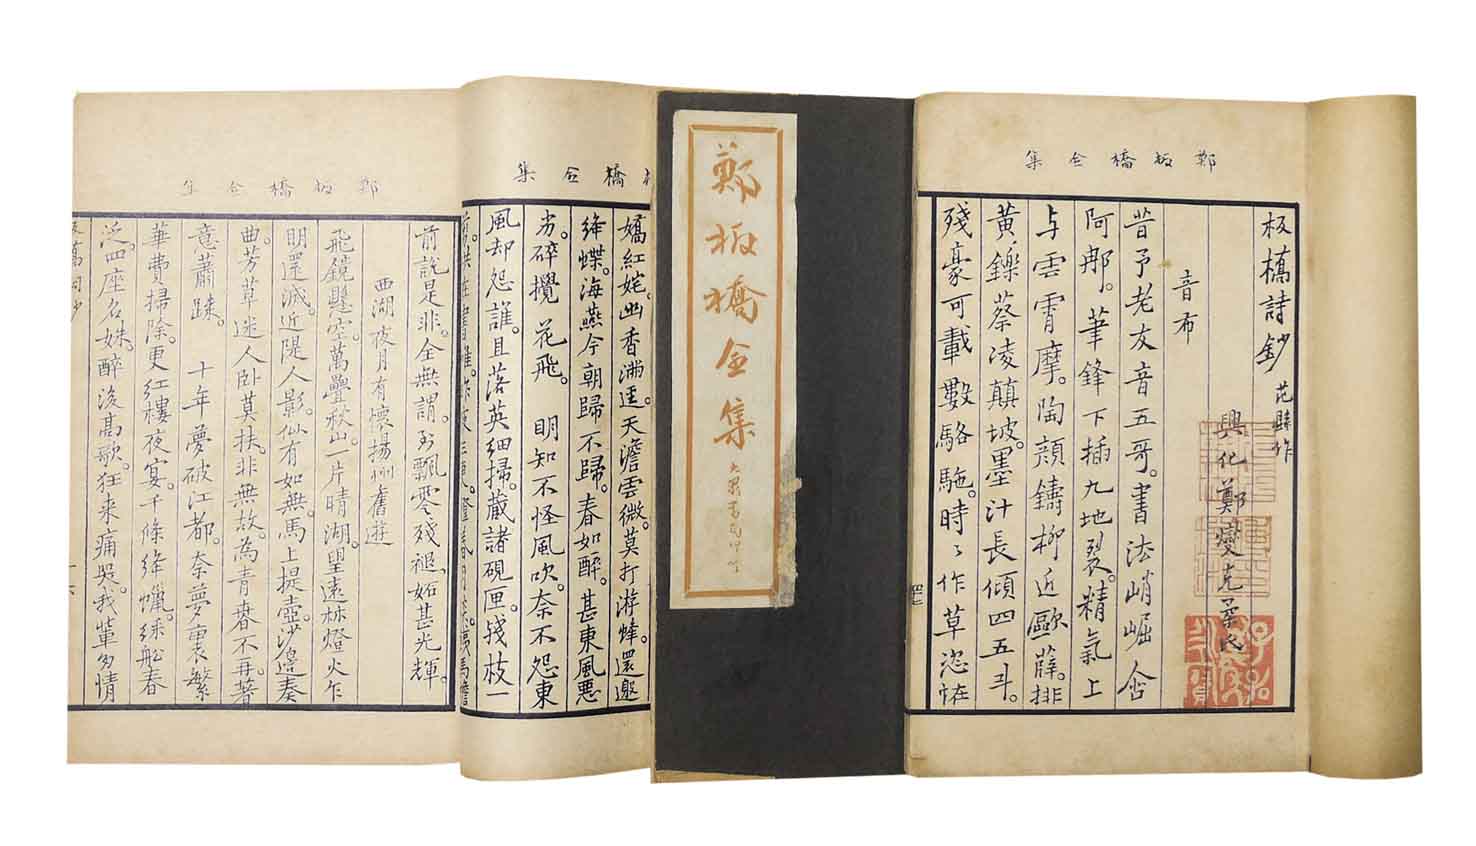 鄭板橋全集
板橋詩鈔 范縣作
興化鄭燮克柔氏
音布
昔予老友音五哥。書法峭崛含
阿那。筆鋒下插九地裂。精氣上
与雲霄摩。陶顔鑄柳近歐薛。排
黄鑠蔡凌顛坡。墨汁長傾四五斗。
殘豪可載數駱駞。時〻作草恣
鄭板橋全集
橋全集
嬌紅姹。幽香滿
天澹雲微。莫打游蜂。還邀
絳蝶。海燕今朝歸不歸。春如醉。甚東風惡
劣。碎攪花飛。 明知不怪風吹。奈不怨東
風却怨誰。且落英細掃。蔵諸硯匣。残枝一
鄭板橋全集
前説是非。全無謂。
飄零殘褪、妬甚光輝。
西湖夜月有懷揚州舊遊
飛鏡懸空。萬疊秋山。一片晴湖。望遠林燈火乍
明還滅。近隄人影。似有如無。馬上提壺。沙邊奏
曲。芳草迷人卧莫扶。非無故。為青春不再。著
意蕭疎。 十年夢破江都。奈夢裏繁
華費掃除。更紅樓夜宴。千條絳蠟。綵船春
泛。四座名姝。醉後高歌。狂来痛哭。我輩多情